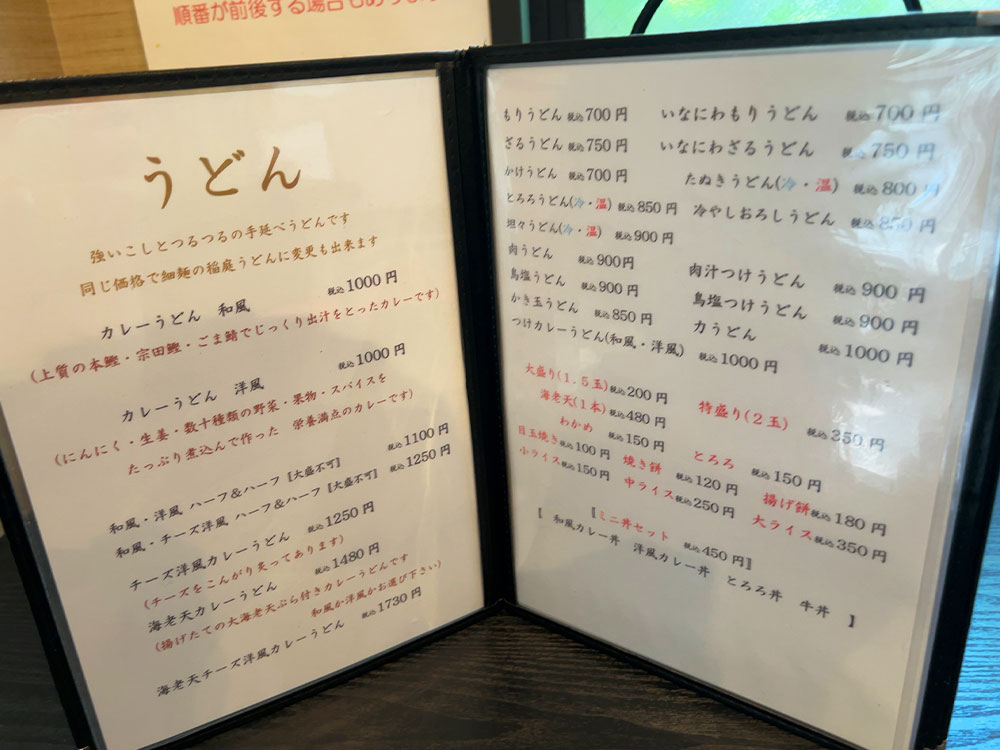 順番が前後する場合も
うどん
強いこしとつるつるの手延べうどんです
同じ価格で細麺の稲庭うどんに変更も出来ます
カレーうどん 和風 税込1000円
(上質の本鰹・宗田鰹・ごま鯖でじっくり出汁をとったカレーです)
カレーうどん 洋風 税込1000円
(にんにく・生姜・数十種類の野菜・果物・スパイスを
たっぷり煮込んで作った 栄養満点のカレーです)
和風・洋風 ハーフ&ハーフ〖大盛不可〗 税込1100円
和風・チーズ洋風 ハーフ&ハーフ〖大盛不可〗 税込1250円
チーズ洋風カレーうどん 税込1250円
(チーズをこんがり炙ってあります)
海老天カレーうどん 税込1480円
(揚げたての大海老天ぷら付きカレーうどんです
和風か洋風かお選び下さい)
海老天チーズ洋風カレーうどん 税込1730円
もりうどん 税込700円 いなにわもりうどん 税込700円
ざるうどん 税込750円 いなにわざるうどん 税込750円
かけうどん 税込700円 たぬきうどん(冷・温) 税込800円
とろろうどん(冷・温) 税込850円 冷やしおろしうどん 税込850円
坦々うどん(冷・温) 税込900円
肉うどん 税込900円 肉汁つけうどん 税込900円
鳥塩うどん 税込900円 鳥塩つけうどん 税込900円
かき玉うどん 税込850円 力うどん 税込1000円
つけカレーうどん(和風・洋風) 税込1000円
大盛り(1.5玉)税込200円 特盛り(2玉) 税込350円
海老天(1本)税込480円
わかめ 税込150円 とろろ 税込150円
目玉焼き税込100円 焼き餅 税込120円 揚げ餅税込180円
小ライス税込150円 中ライス税込250円 大ライス税込350円
〖ミニ丼セット 税込450円〗
【 和風カレー丼 洋風カレー丼 とろろ丼 牛丼 】